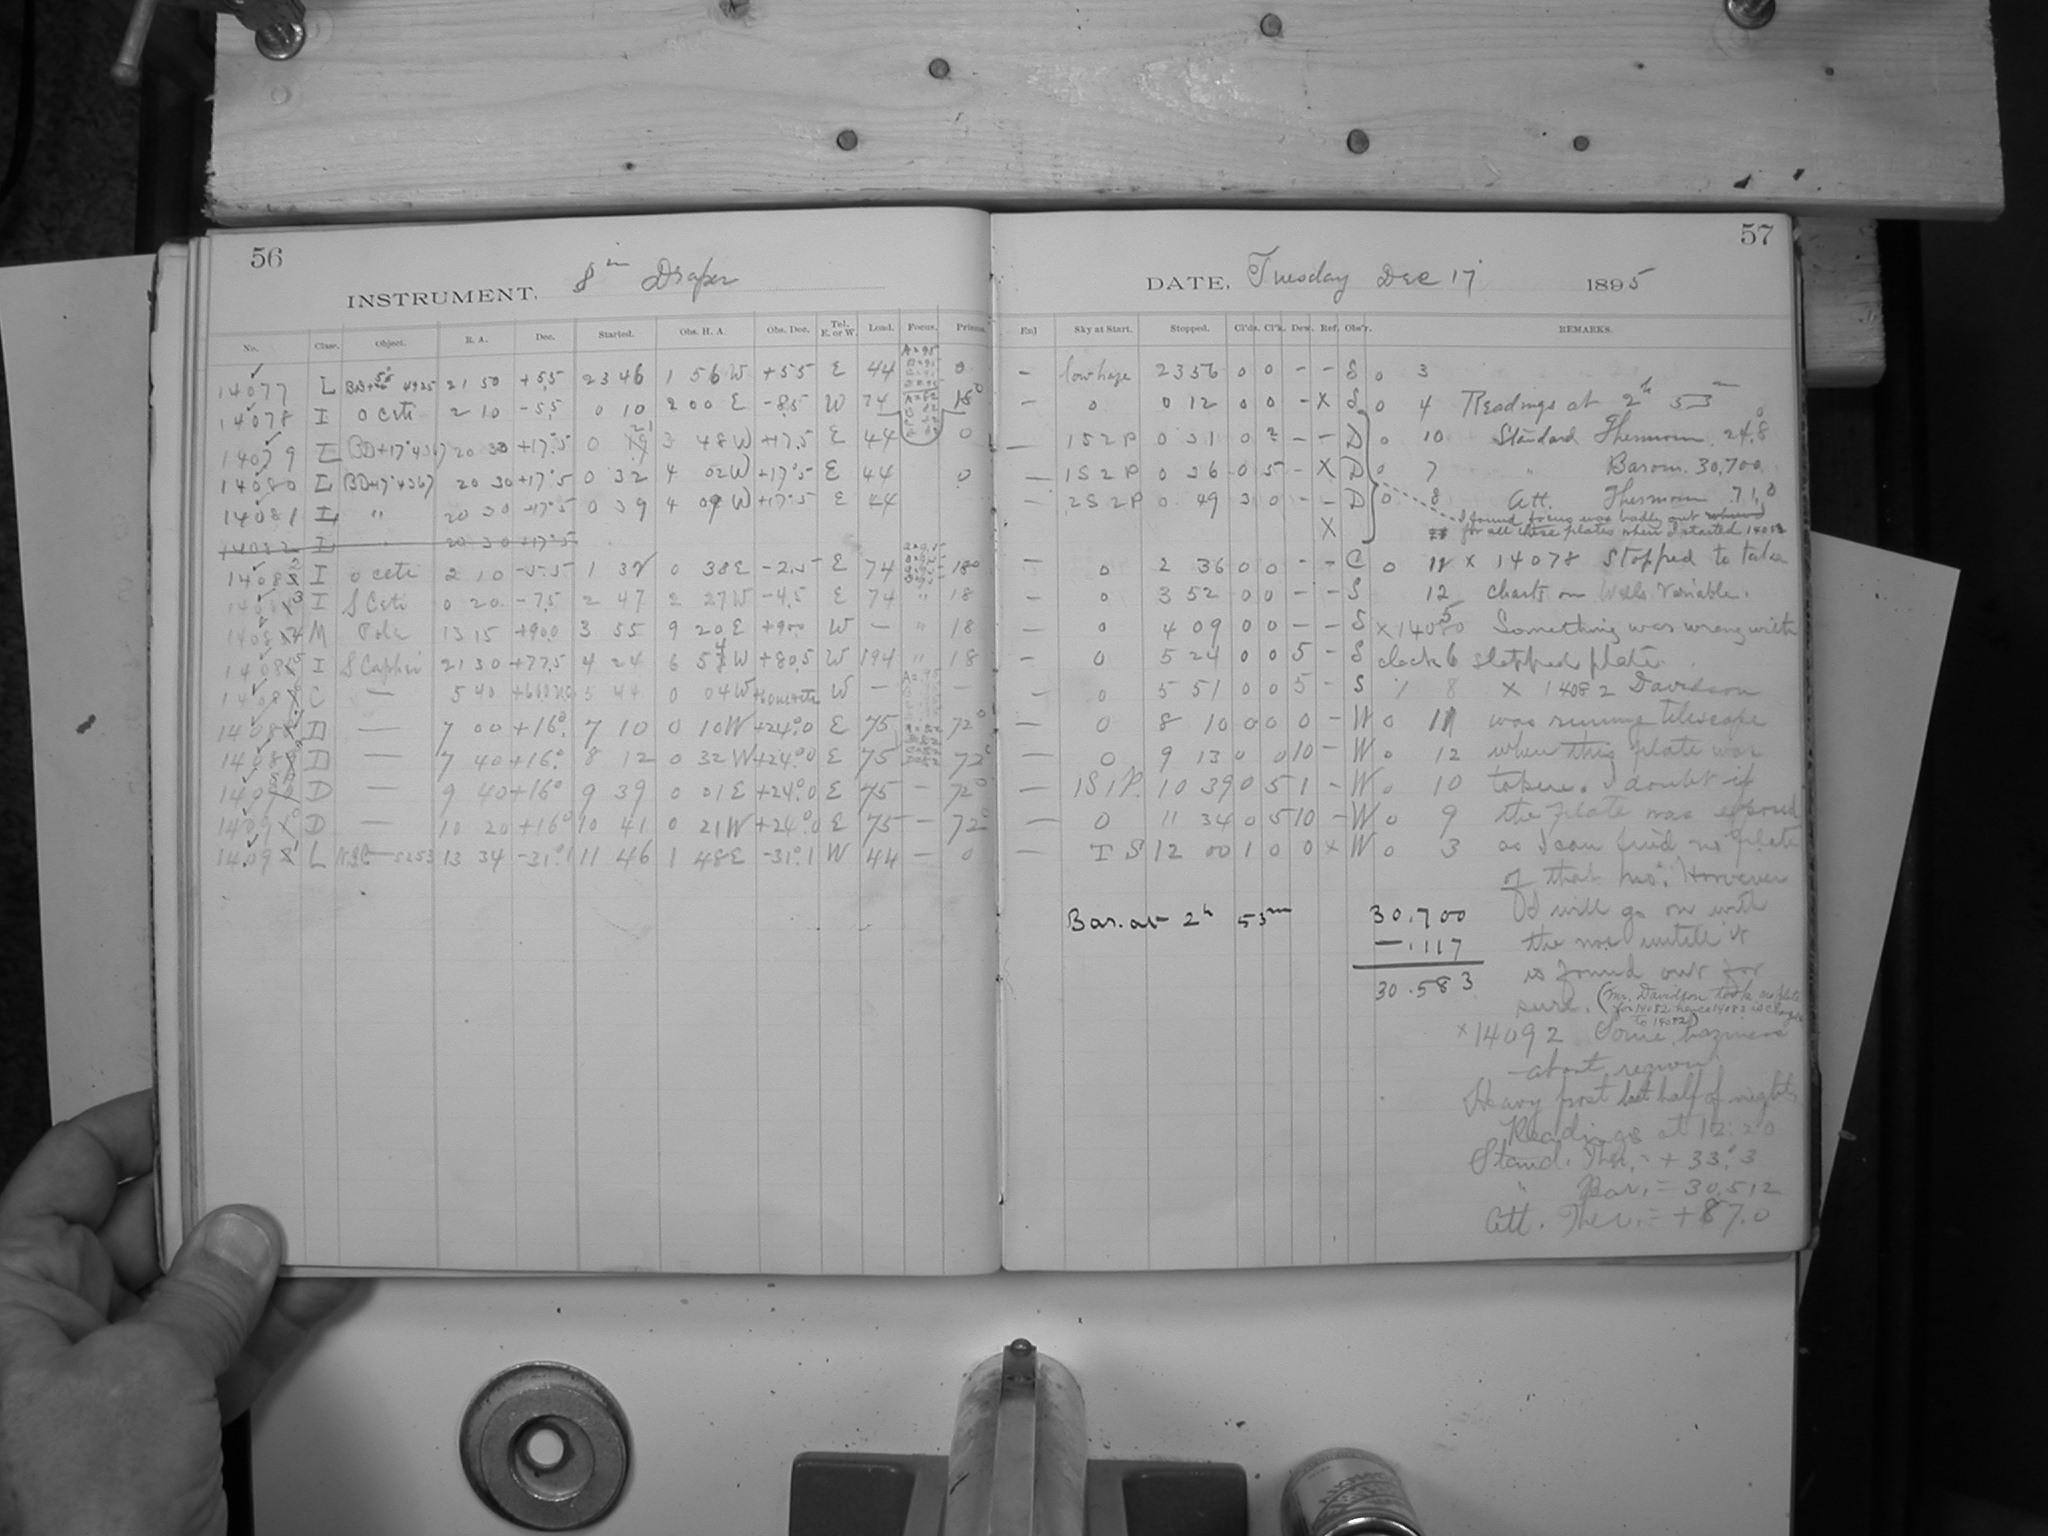 56
INSTRUMENT, 8 in Draper
No. Class. Object. R. A. Dec. Started. Obs. H. A. Obs. Dec. Tel. E. or W. Load. Focus. Prisms.
14077 L BD+55° 4925 21 50 +55 23 46 1 56 W +55 E 44 0
14078 I o Ceti 2 10 -5.5 0 10 2 00 E -8.5 W 74 18°
14079 L BD+17°4367 20 30 +17°.5 0 21 3 48 W +17.5 E 44 0
14080 L BD+17°4367 20 30 +17°.5 0 32 4 02 W +17°.5 E 44 0
14081 L " 20 30 +17°.5 0 39 4 09 W +17°.5 E 44
14082 L " 20 30 +17.5
14082 I o Ceti 2 10 -5.5 1 58 0 38 E -2.5 E 74 180
14083 I S Ceti 0 20 -7.5 2 47 2 27 W -4.5 E 74 " 18
14084 M Pole 13 15 +90.0 3 55 9 20 E +90.0 W — " 18
14085 I S Cephei 21 30 +77.5 4 24 6 54 W +80.5 W 194 " 18
C — 5 40 5 44 0 04 W W — —
D — 7 00 +16° 7 10 0 10 W +24°.0 E 75 72°
D — 7 40 +16° 8 12 0 32 W +24°.0 E 75 72°
D — 9 40 +16° 9 39 0 01 E +24°.0 E 75 — 72°
D — 10 20 +16° 10 41 0 21 W +24°.0 E 75 — 72°
L N.G.C. 5253 13 34 -31°.1 11 46 1 48 E -31°.1 W 44 — 0
57
DATE, Tuesday Dec 17 1895
End Sky at Start. Stopped. Cl'ds. Cl'k. Dew. Ref. Obs'r. REMARKS.
— low haze 23 56 0 0 - - S 0 3
— 0 0 12 0 0 - X S 0 4 Readings at 2h 53m
— 1S2P 0 31 0 2 - - D 0 10 Standard Thermom. 24.8
— 1S2P 0 36 0 5 - X D 0 7 " Barom. 30,700
— 2S2P 0 49 3 0 - - D 0 8 Att. Thermom 71.0
X I found focus was badly out
for all these plates when I started 14082
— 0 2 36 0 0 - - C 0 11 x 14078 Stopped to take
— 0 3 52 0 0 - - S 12 charts on Wells Variable.
— 0 4 09 0 0 - - S x 14085 Something was wrong with
— 0 5 24 0 0 5 - S clock & stopped plate.
— 0 5 51 0 0 5 - S 1 8 x 14082 Davidson
— 0 8 10 0 0 0 - W 0 11 was running telescope
— 0 9 13 0 0 10 - W 0 12 when this plate was
— 1S1P. 10 39 0 5 1 - W 0 10 taken. I doubt if
— 0 11 34 0 5 10 - W 0 9 the plate was exposed
— I S 12 00 1 0 0 x W 0 3 as I can find no plate
of that no. However
I will go on with
Bar. at 2h 53m 30.700
-.117
30.583
the nos untill it
is found out for
sure. (Mr. Davidson took no plate
for 14082 hence 14083 is changed
to 14082)
x 14092 Some haziness
about region
Heavy frost last half of night.
Readings at 12:20
Stand. Ther. = + 33°.3
" Bar. = 30.512
Att. Ther. = +87.0